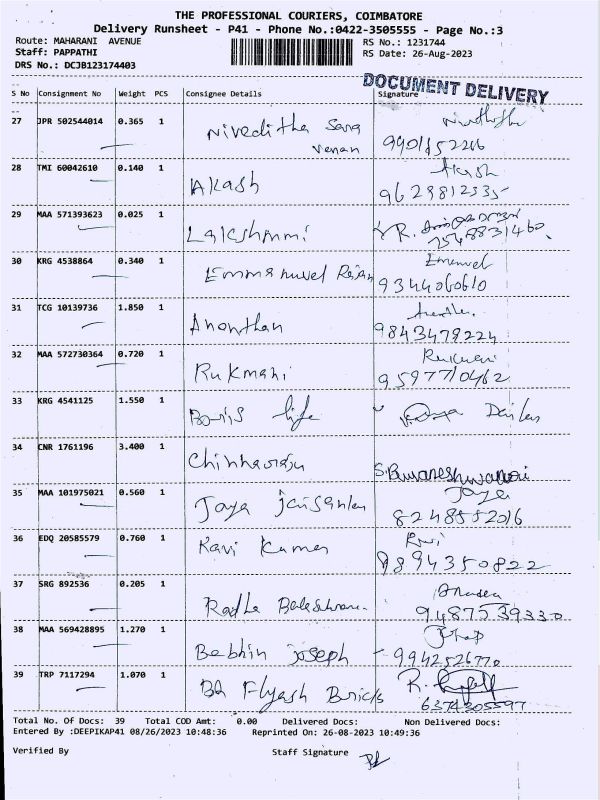 THE PROFESSIONAL COURIERS, COIMBATORE
Delivery Runsheet - P41 - Phone No.:0422-3505555 - Page No.:3
Route: MAHARANI AVENUE
Staff: PAPPATHI
DRS No.: DCJB123174403
RS No.: 1231744
RS Date: 26-Aug-2023
DOCUMENT DELIVERY
S No Consignment No Weight PCS Consignee Details Signature
27 JPR 502544014 0.365 1 Niveditha Sara
venan
28 TMI 60042610 0.140 1 Akash Akash
9629812335
29 MAA 571393623 0.025 1 Lakshmmi R.
7548831460
30 KRG 4538864 0.340 1 Emmanuvel Rajan Emanuel
9344060610
31 TCG 10139736 1.850 1 Ananthan
9843479224
32 MAA 572730364 0.720 1 Rukmani
9597710462
33 KRG 4541125 1.550 1 life
34 CNR 1761196 3.400 1 Chinnaraju S.Buvaneshwari
35 MAA 101975021 0.560 1 Jaya Jaisankar Jaya
8248552016
36 EDQ 20585579 0.760 1 Ravi Kumar Ravi
9894350822
37 SRG 892536 0.205 1 Radha
9487539330
38 MAA 569428895 1.270 1 Bebhin joseph
9942526770
39 TRP 7117294 1.070 1 Flyash Bricks R.
6374305597
Total No. Of Docs: 39 Total COD Amt: 0.00 Delivered Docs: Non Delivered Docs:
Entered By :DEEPIKAP41 08/26/2023 10:48:36 Reprinted On: 26-08-2023 10:49:36
Verified By Staff Signature